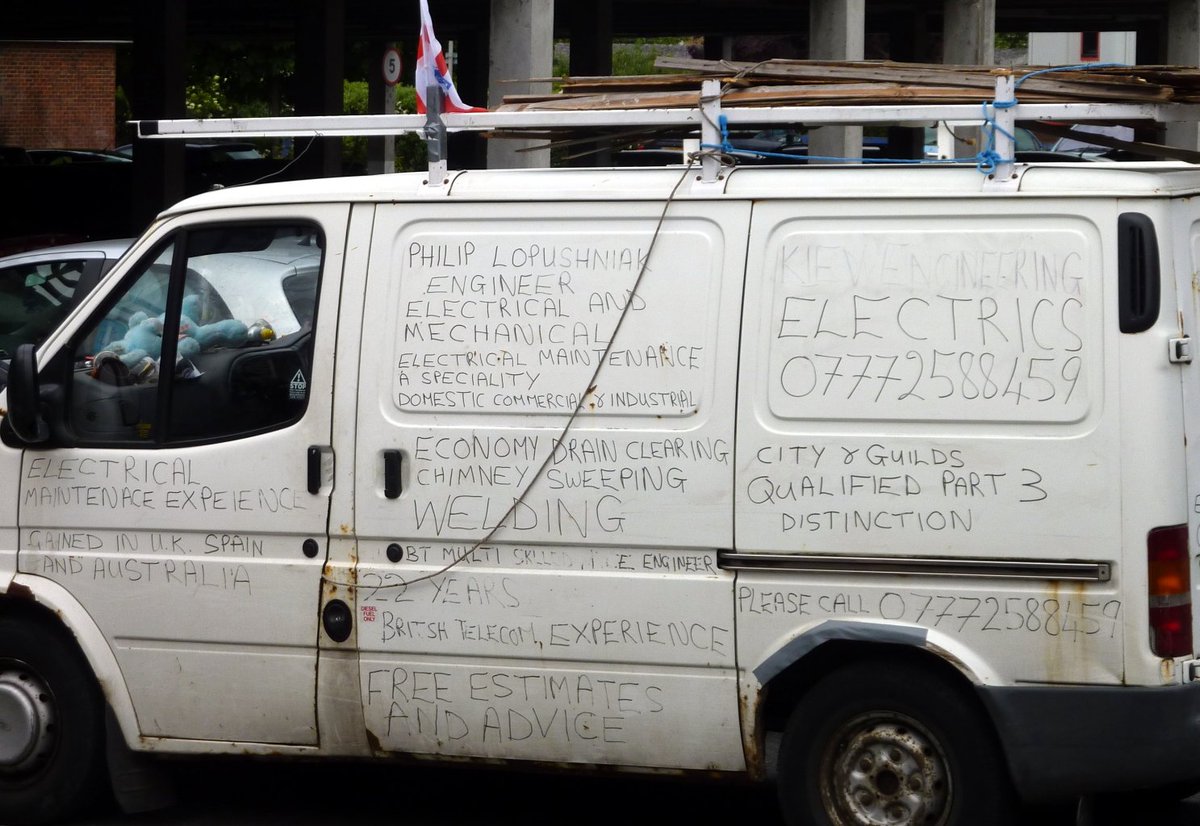 5
PHILIP LOPUSHNIAK
ENGINEER
ELECTRICAL AND
MECHANICAL
ELECTRICAL MAINTENANCE
A SPECIALITY
DOMESTIC COMMERCIAL & INDUSTRIAL
ECONOMY DRAIN CLEARING
CHIMNEY SWEEPING
WELDING
BT MULTI SKILLED ENGINEER
22 YEARS
BRITSH TELECOM, EXPERIENCE
FREE ESTIMATES
AND ADVICE
KIEV ENGINEERING
ELECTRICS
07772588459
CITY & GUILDS
QUALIFIED PART 3
DISTINCTION
PLEASE CALL 07772588459
ELECTRICAL
MAINTENACE EXPEIENCE
GAINED IN U.K. SPAIN
AND AUSTRALIA
STOP
DIESEL
FUEL
ONLY